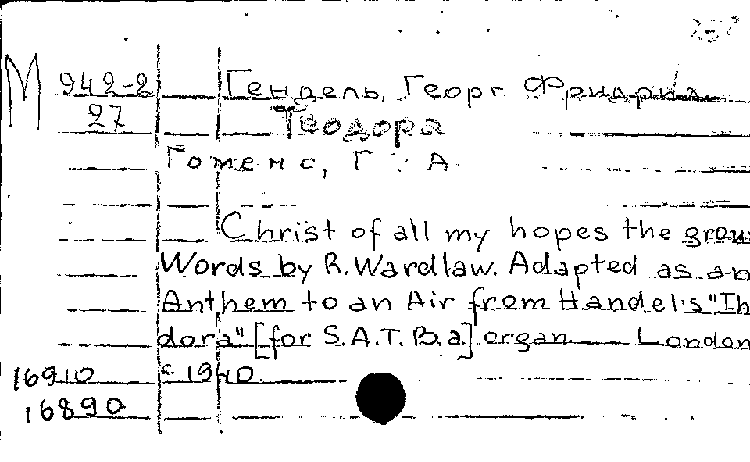 М 942-2 Гендель, Георг Фридрих
27 Теодора
Гоменс, Г. А.
Christ of all my hopes the grou
Words by R. Wardlaw. Adapted as an
Anthem to an Air from Handel's "Th
dora" [for S.A.T.B.a] organ — London
16910 c 1940
16890